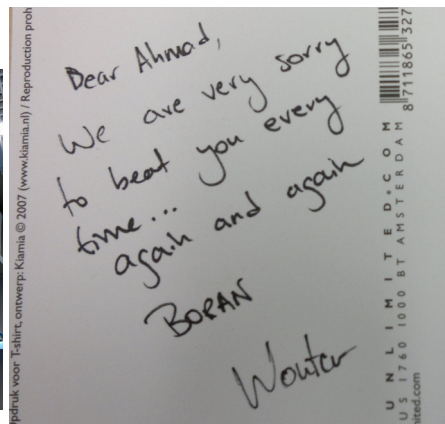 Dear Ahmad,
We are very sorry
to beat you every
time...
again and again
BORAN
Wouter
pdruk voor T-shirt, ontwerp: Kiamia © 2007 (www.kiamia.nl) / Reproduction proh
8 711865 327
UNLIMITED.COM
US 1760 1000 BT AMSTERDAM
ited.com